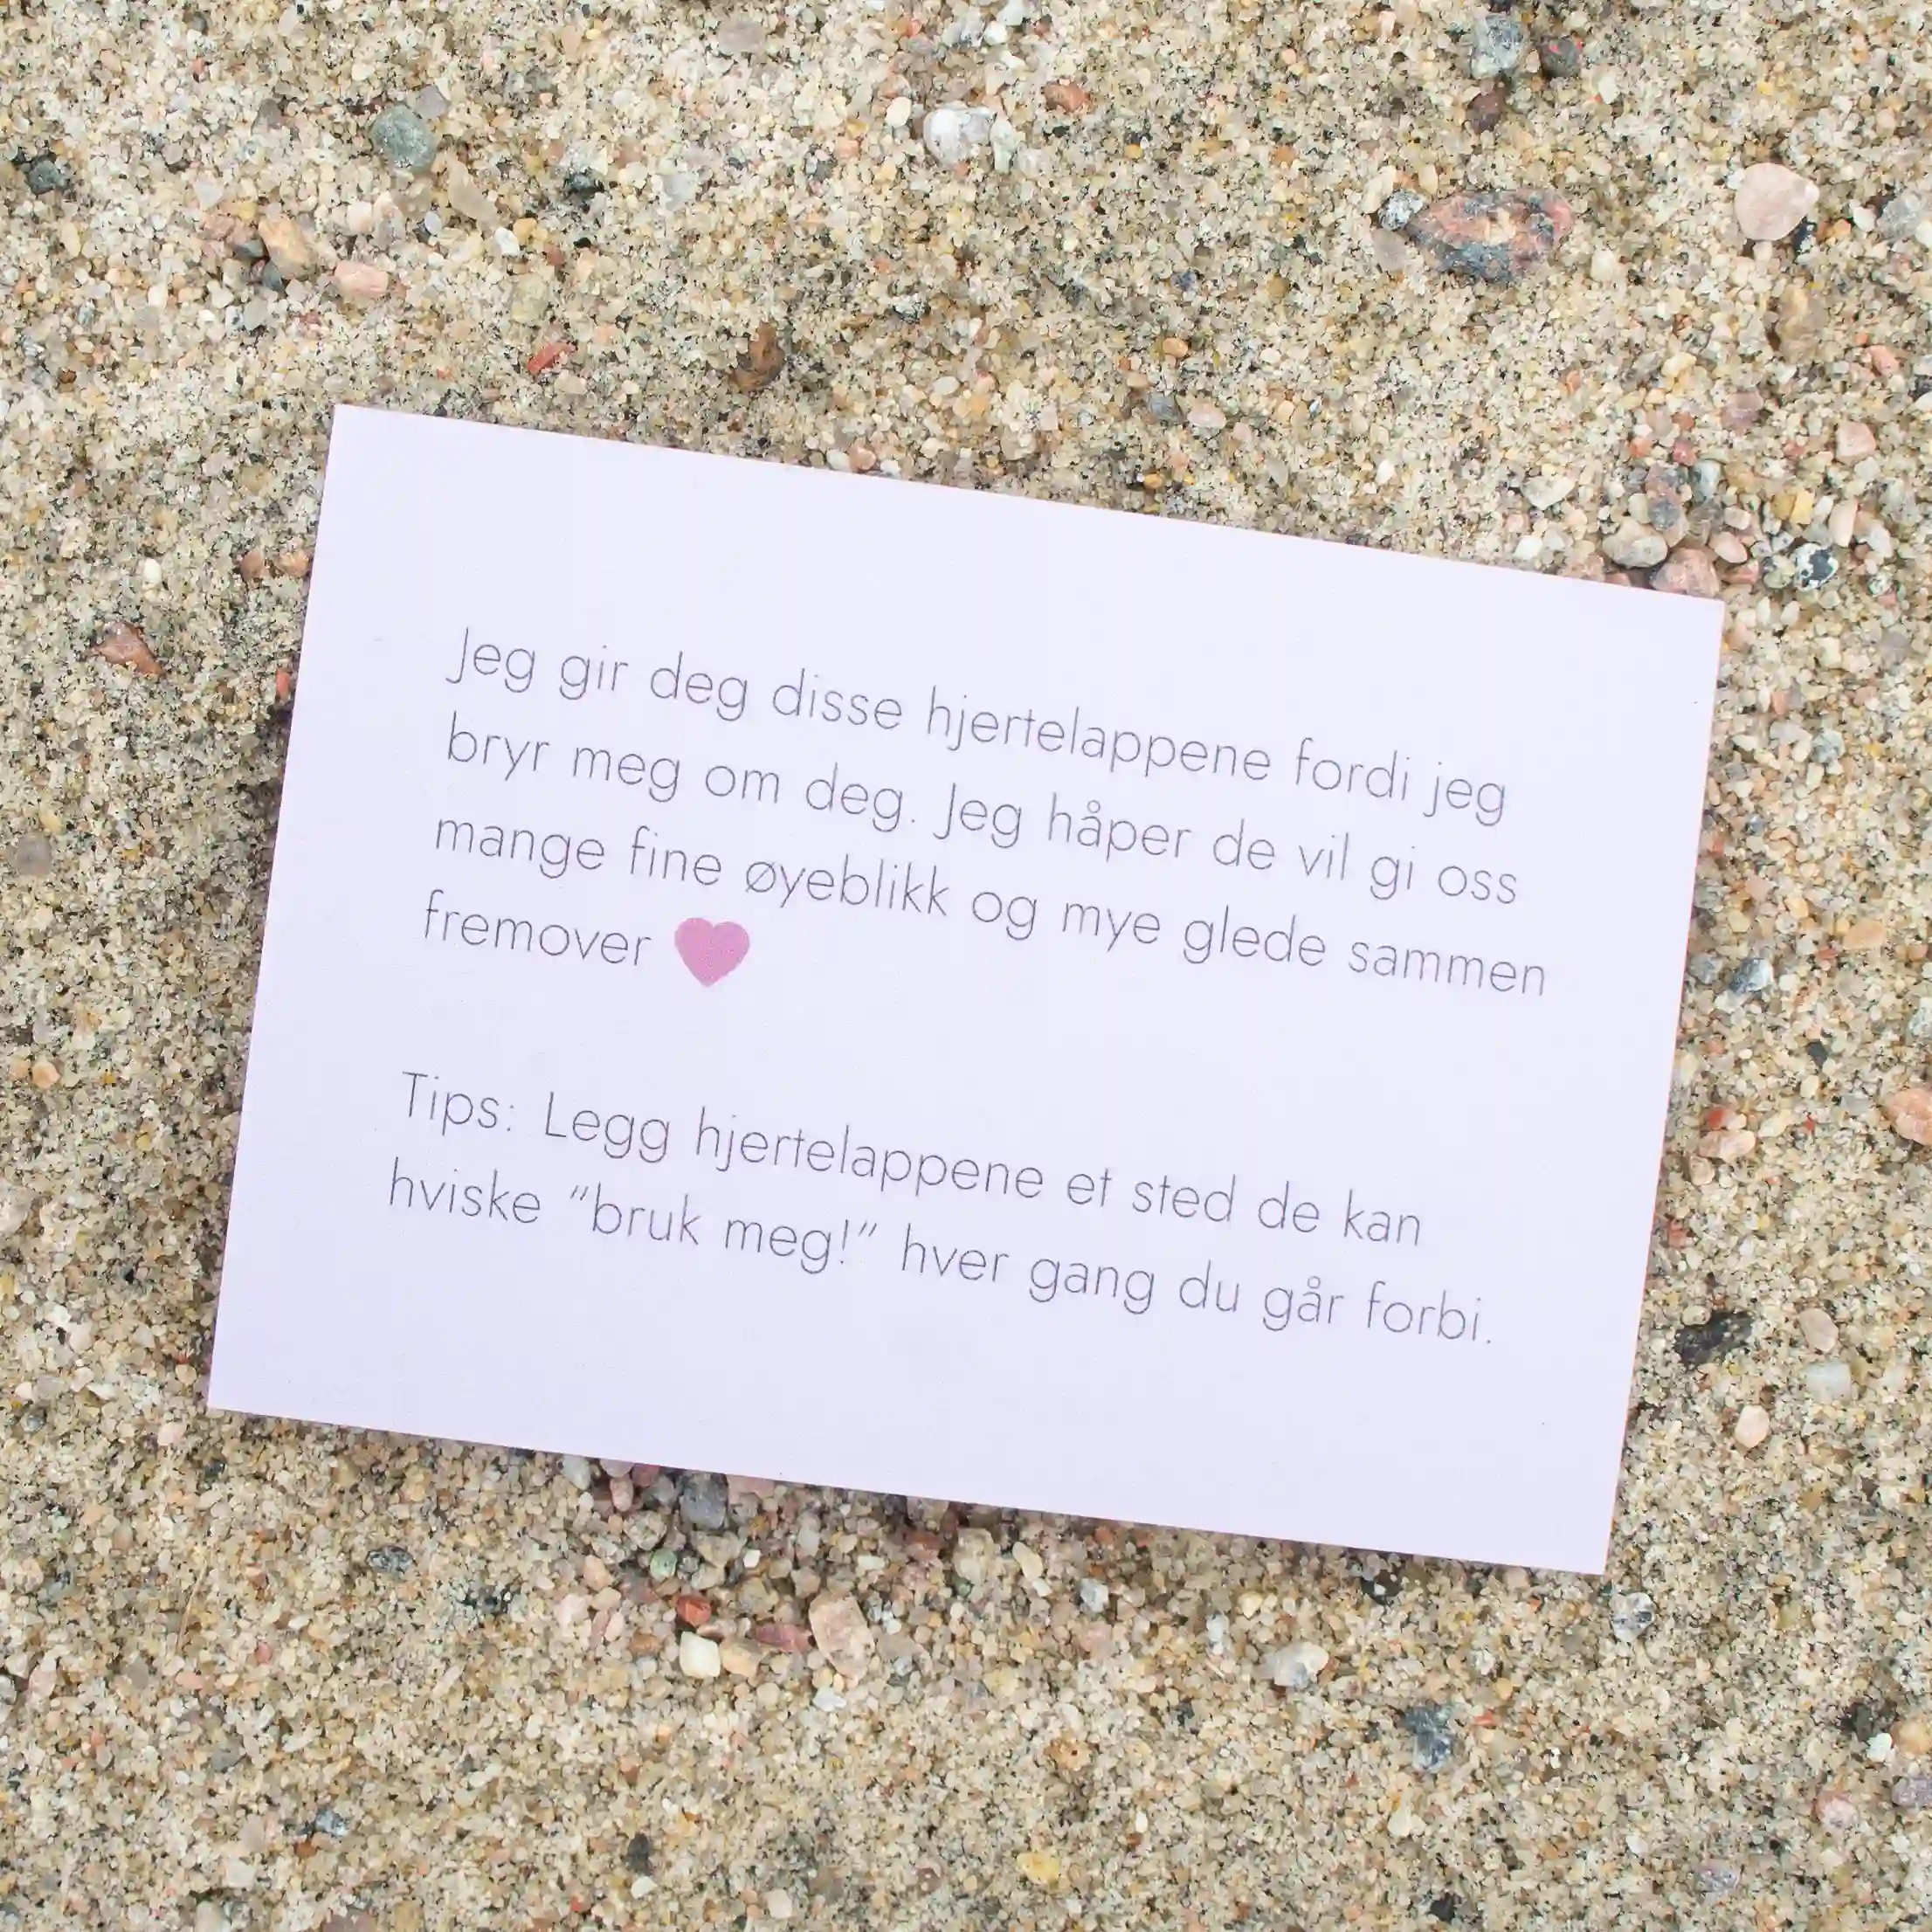 Jeg gir deg disse hjertelappene fordi jeg
bryr meg om deg. Jeg håper de vil gi oss
mange fine øyeblikk og mye glede sammen
fremover
Tips: Legg hjertelappene et sted de kan
hviske “bruk meg!” hver gang du går forbi.